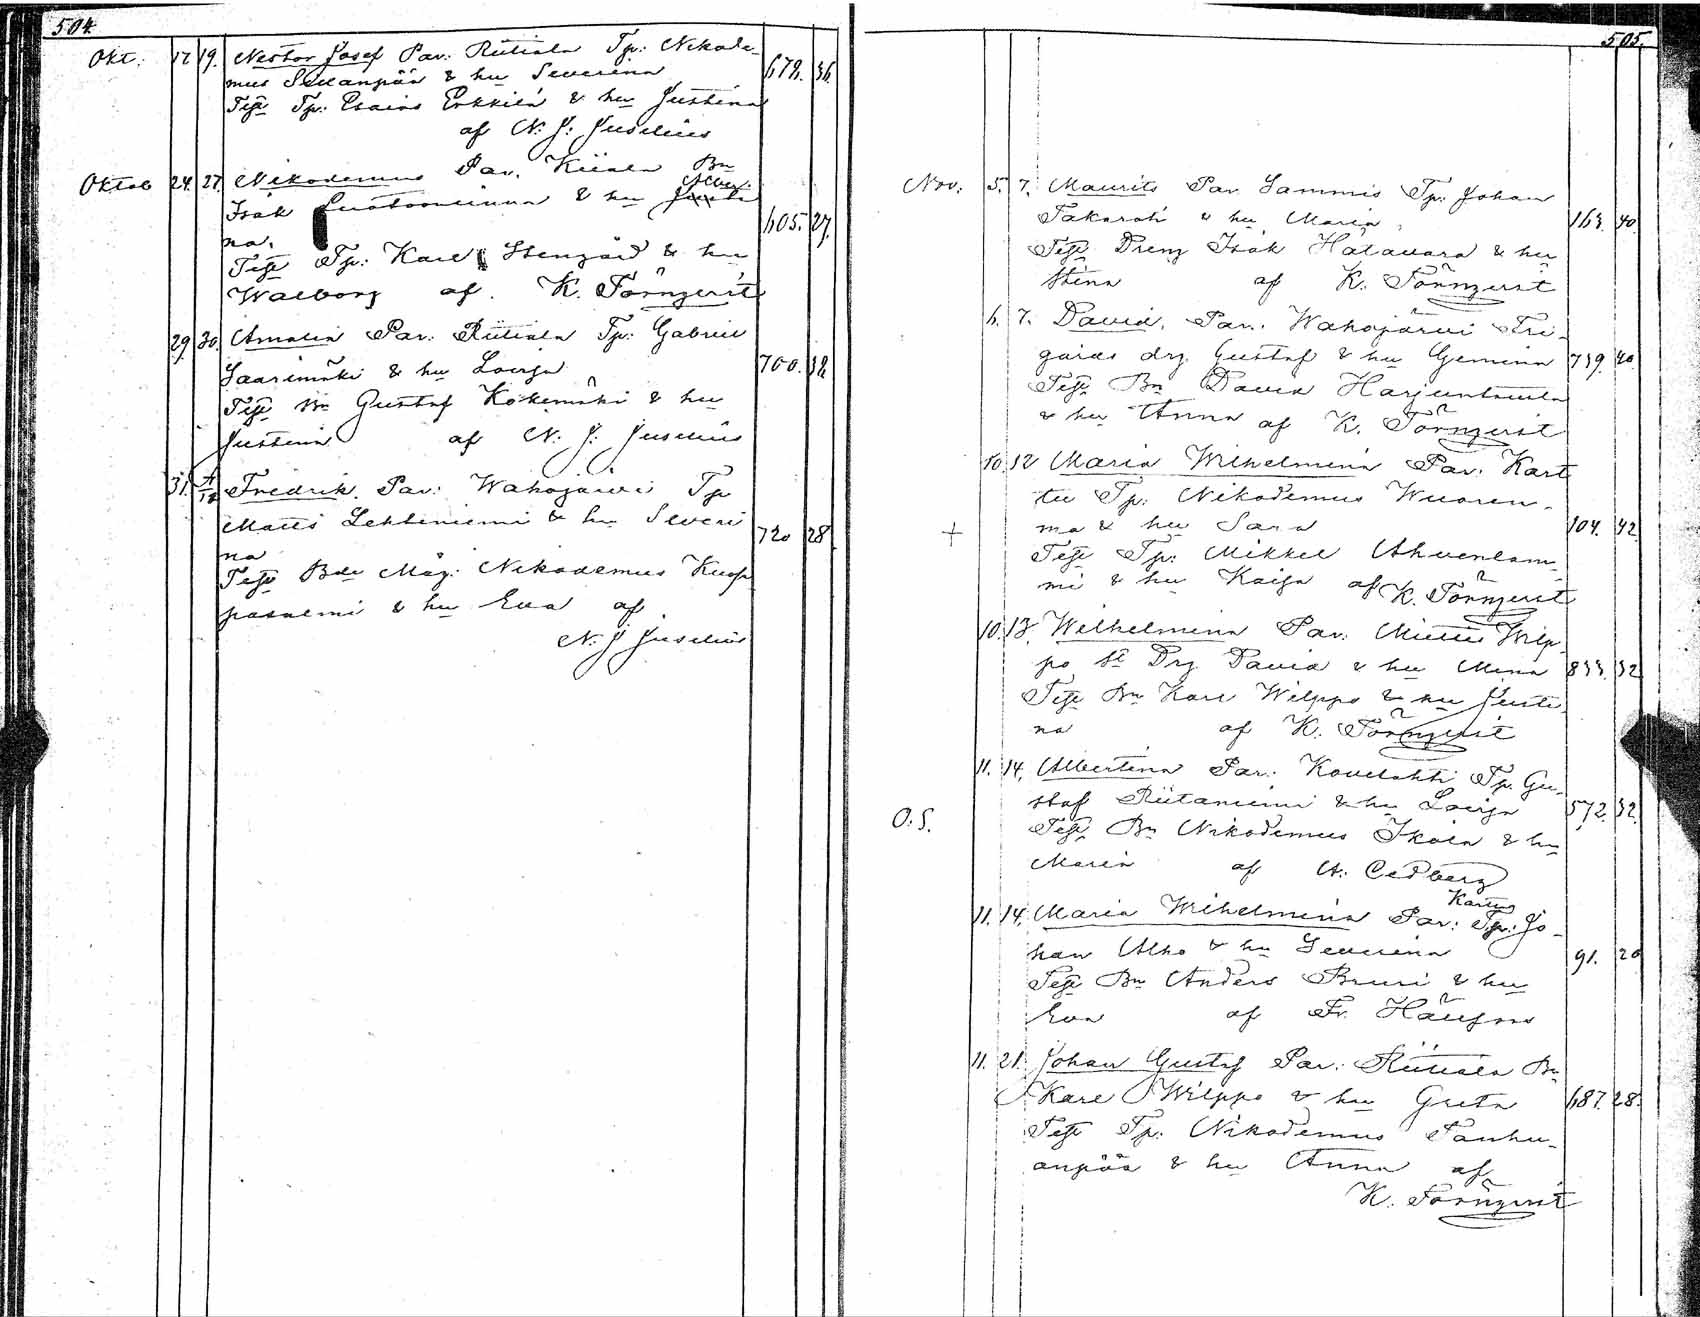 504.
Okt. 17 19. Nestor Josef Par. Riitiala Tp. Nikode-
mus Sillanpää & hu Severina 678. 36.
Test Tp. Esaias Erkkilä & hu Justina
af N. J. Juselius
Oktob 24. 27. Nikodemus Par. Kiiala Bn
Isak & hu
na. 605. 27.
Test Tp. Karl Stengård & hu
Walborg af. K. Törnqvist
29. 30. Amalia Par. Riitiala Tp. Gabriel
Saarimäki & hu Lovisa 700. 38.
Test Bn Gustaf Kokemäki & hu
Justina af N. J. Juselius
31. Fredrik. Par. Wahojärvi Tp
Matts Lehtiniemi & hu Severi 720 28.
na
Test Nikodemus Kuop
pasalmi & hu Eva af
N. J Juselius
505.
Nov. 5. 7. Maurits Par Lammis Tp. Johan
& hu Maria 163. 40.
Test Dreng Isak Hatavara & hu
Stina af K. Törnqvist
6. 7. David. Par. Wahojärvi Fri-
gårds drg Gustaf & hu Gemina 739. 40.
Test Bn David Harjuntausta
& hu Anna af K. Törnqvist
10. 12 Maria Wilhelmina Par. Kart
tu Tp. Nikodemus Wuoren-
+ ma & hu Sara 104. 42.
Test Tp. Mikkel Ahvenlam-
mi & hu Kaisa af K. Törnqvist
10. 13. Wilhelmina Par. Miettu Wilp-
po Drg David & hu Mina 833. 32.
Test Bn Karl Wilppo & hu Justi-
na af K. Törnqvist
11. 14. Albertina Par. Kovelahti Tp. Gu-
staf Riitaniemi & hu Lovisa 572. 32.
O.S. Test Bn Nikodemus Ikola & hu
Maria af A. Cedberg
Karttu
11. 14. Maria Wilhelmina Par. Tp. Jo-
han Alho & hu Severina 91. 20
Test Bn Anders Bruri & hu
Eva af Fr.
11. 21. Johan Gustaf Par. Riitiala Bn
Karl Wilppo & hu Greta 687. 28.
Test Tp. Nikodemus Tanhu-
anpää & hu Anna af
K. Törnqvist